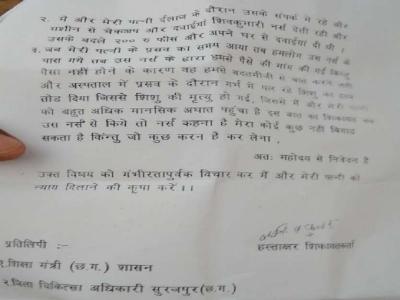 २. मैं और मेरी पत्नी ईलाज के दौरान उसके संपर्क में रहे और
मशीन से चेकअप और दवाईयां शिवकुमारी नर्स देती रही और
उसके बदले २०० रु फीस और अपने घर से दवाईया दी थी ।
३. जब मेरी पत्नी के प्रसव का समय आया तब हमलोग उस नर्स के
पास गये तब उस नर्स के द्वारा हमसे पैसे की मांग की गई किन्तु
पैसा नहीं होने के कारण वह हमसे बदतमीजी से बात करने लगी
और अस्पताल में प्रसव के दौरान गर्भ में पल रहे शिशु का
तोड दिया जिससे शिशु की मृत्यु हो गई, जिससे मैं और मेरी पत्नी
को बहुत अधिक मानसिक अघात पहुंचा है इस बात का शिकायत जब
उस नर्स से किये तो नर्स कहना है मेरा कोई कुछ नहीं बिगाड
सकता है किंन्तु जो कुछ करन है कर लेना ।
अतः महोदय से निवेदन है
उक्त विषय को गंभीरतापूर्वक विचार कर मैं और मेरी पत्नी को
न्याय दिलाने की कृपा करें ।।
प्रतिलिपी :-
हस्ताक्षर शिकायतकर्ता
१.शिक्षा मंत्री (छ.ग.) शासन
२.जिला चिकित्सा अधिकारी सुरजपुर(छ.ग.)